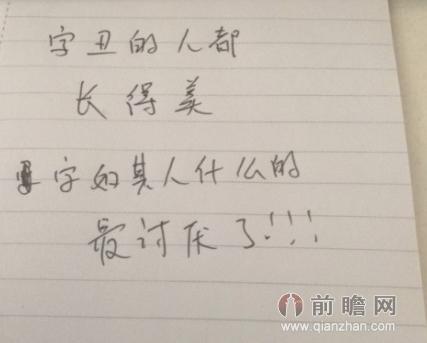 字丑的人都
长得美
字如其人什么的
最讨厌了!!!
前瞻网
www.qianzhan.com